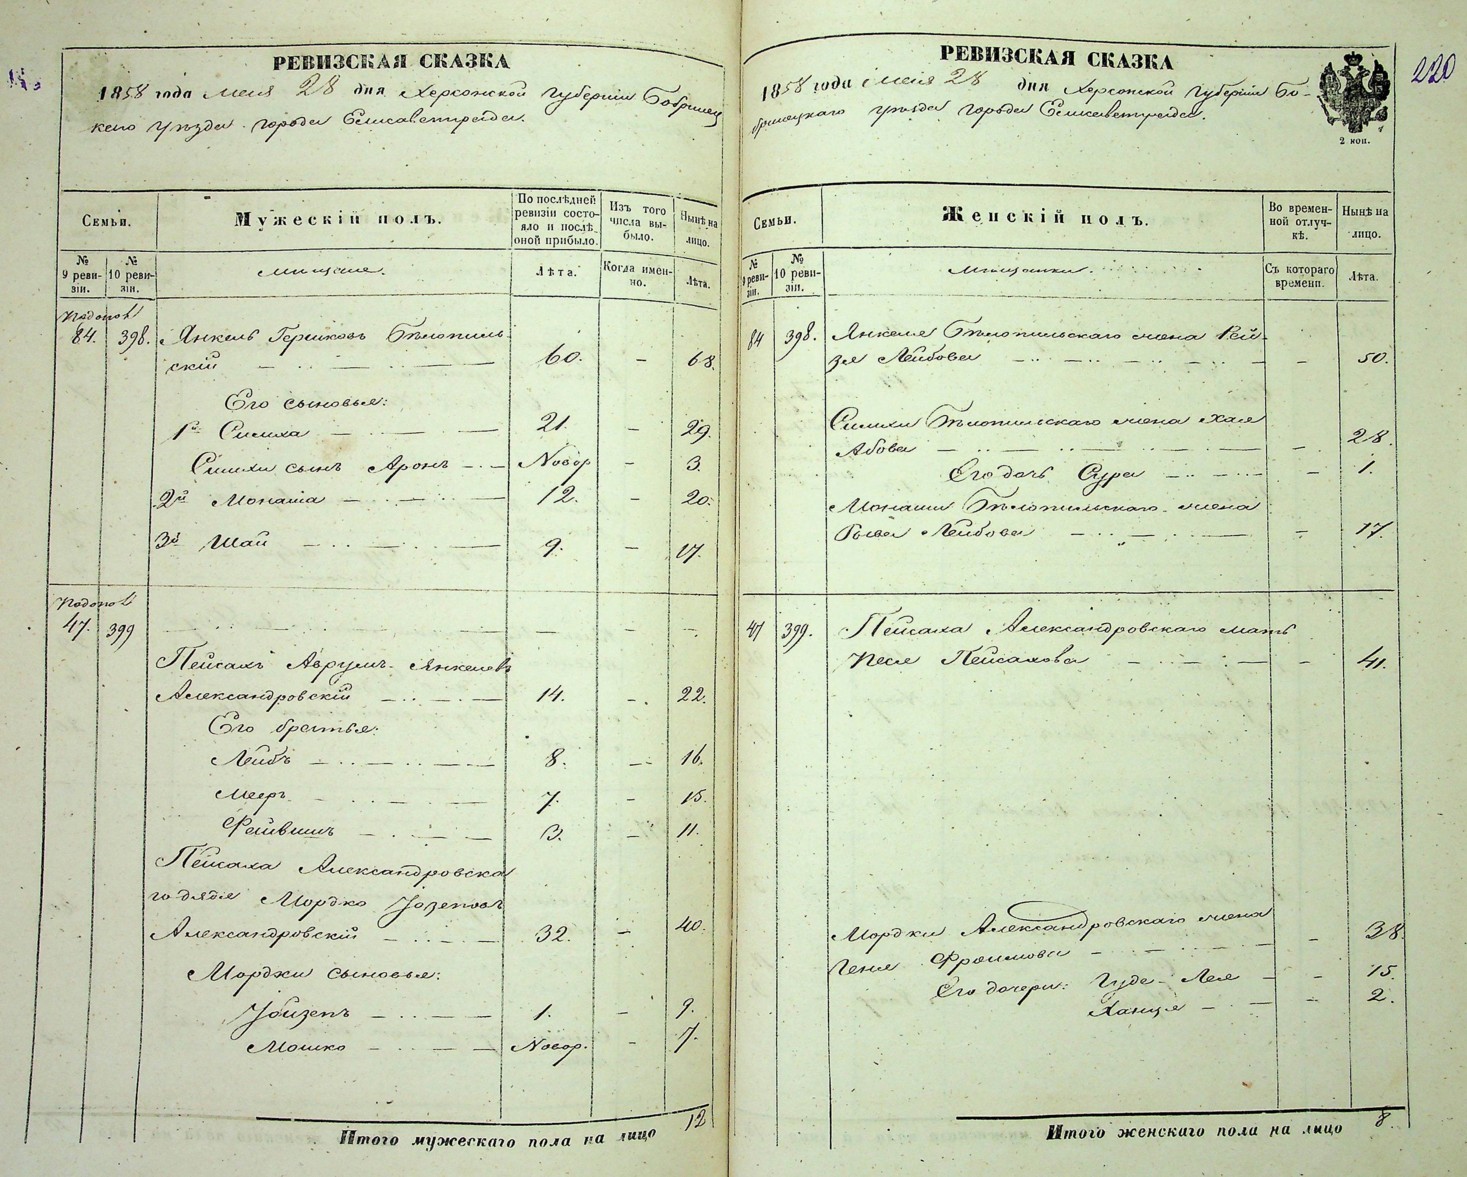 РЕВИЗСКАЯ СКАЗКА
1858 года Мая 28 дня Херсонской Губерніи Бобринец
каго уѣзда города Елисаветграда.
Семьи.
Мужескій полъ.
По послѣдней ревизіи состояло и послѣ оной прибыло.
Изъ того числа выбыло.
Нынѣ на лицо.
№ 9 ревизіи.
№ 10 ревизіи.
Мѣщане.
Лѣта.
Когда именно.
Лѣта.
84. 398. Янкель Гершковъ Бѣлопиль
скій 60. 68.
Его сыновья:
1й Симха 21. 29.
Симхи сынъ Аронъ Новор 3.
2й Монаша 12. 20.
3й Шаи 9. 17.
47. 399
Пейсахъ Аврумъ Янкелевъ
Александровскій 14. 22.
Его братья:
Лейбъ 8. 16.
Мееръ 7. 15.
Фейвишъ 3. 11.
Пейсаха Александровска
го дядя Мордко Іозеповъ
Александровскій 32. 40.
Мордки сыновья:
Іойзепъ 1. 9.
Мошко Новор. 7.
Итого мужескаго пола на лицо 12
РЕВИЗСКАЯ СКАЗКА
220
1858 года Мая 28 дня Херсонской Губерніи Бо-
бринецкаго уѣзда города Елисаветграда.
2 коп.
Семьи.
Женскій полъ.
Во временной отлучкѣ.
Нынѣ на лицо.
№ 9 ревизіи.
№ 10 ревизіи.
Мѣщанки.
Съ котораго времени.
Лѣта.
84 398. Янкеля Бѣлопильскаго жена Рей-
зя Лейбова 50.
Симхи Бѣлопильскаго жена Хая
Абова 28.
Его дочь Сура 1.
Монаши Бѣлопильскаго жена
Рыва Лейбова 17.
47 399. Пейсаха Александровскаго мать
Песя Пейсахова 41.
Мордки Александровскаго жена
Геня Фроимова 38.
Его дочери: Гуде-Лея 15.
Ханця 2.
Итого женскаго пола на лицо 8.